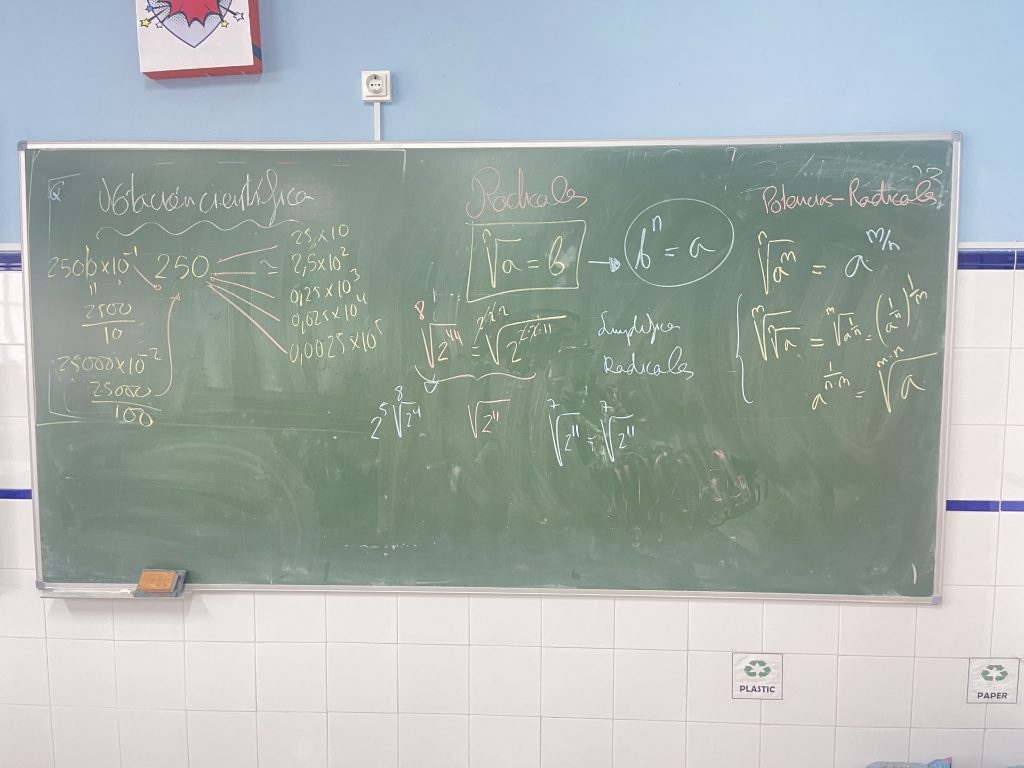 Notación científica
2500x10⁻¹
250
25x10
2,5x10²
0,25x10³
0,025x10⁴
0,0025x10⁵
"
2500
10
25000x10⁻²
25000
100
Radicales
ⁿ√a = b → bⁿ = a
⁸√2⁴⁴ = ²·²·²√2²·²·¹¹
Simplificar
Radicales
2⁵ ⁸√2⁴
√2¹¹
⁷√2¹¹ = ⁷√2¹¹
Potencias-Radicales
ⁿ√aᵐ = a^m/n
ᵐ√ⁿ√a = ᵐ√a^1/n = (a^1/n)^1/m
a^1/n·m = ᵐ·ⁿ√a
PLASTIC
PAPER